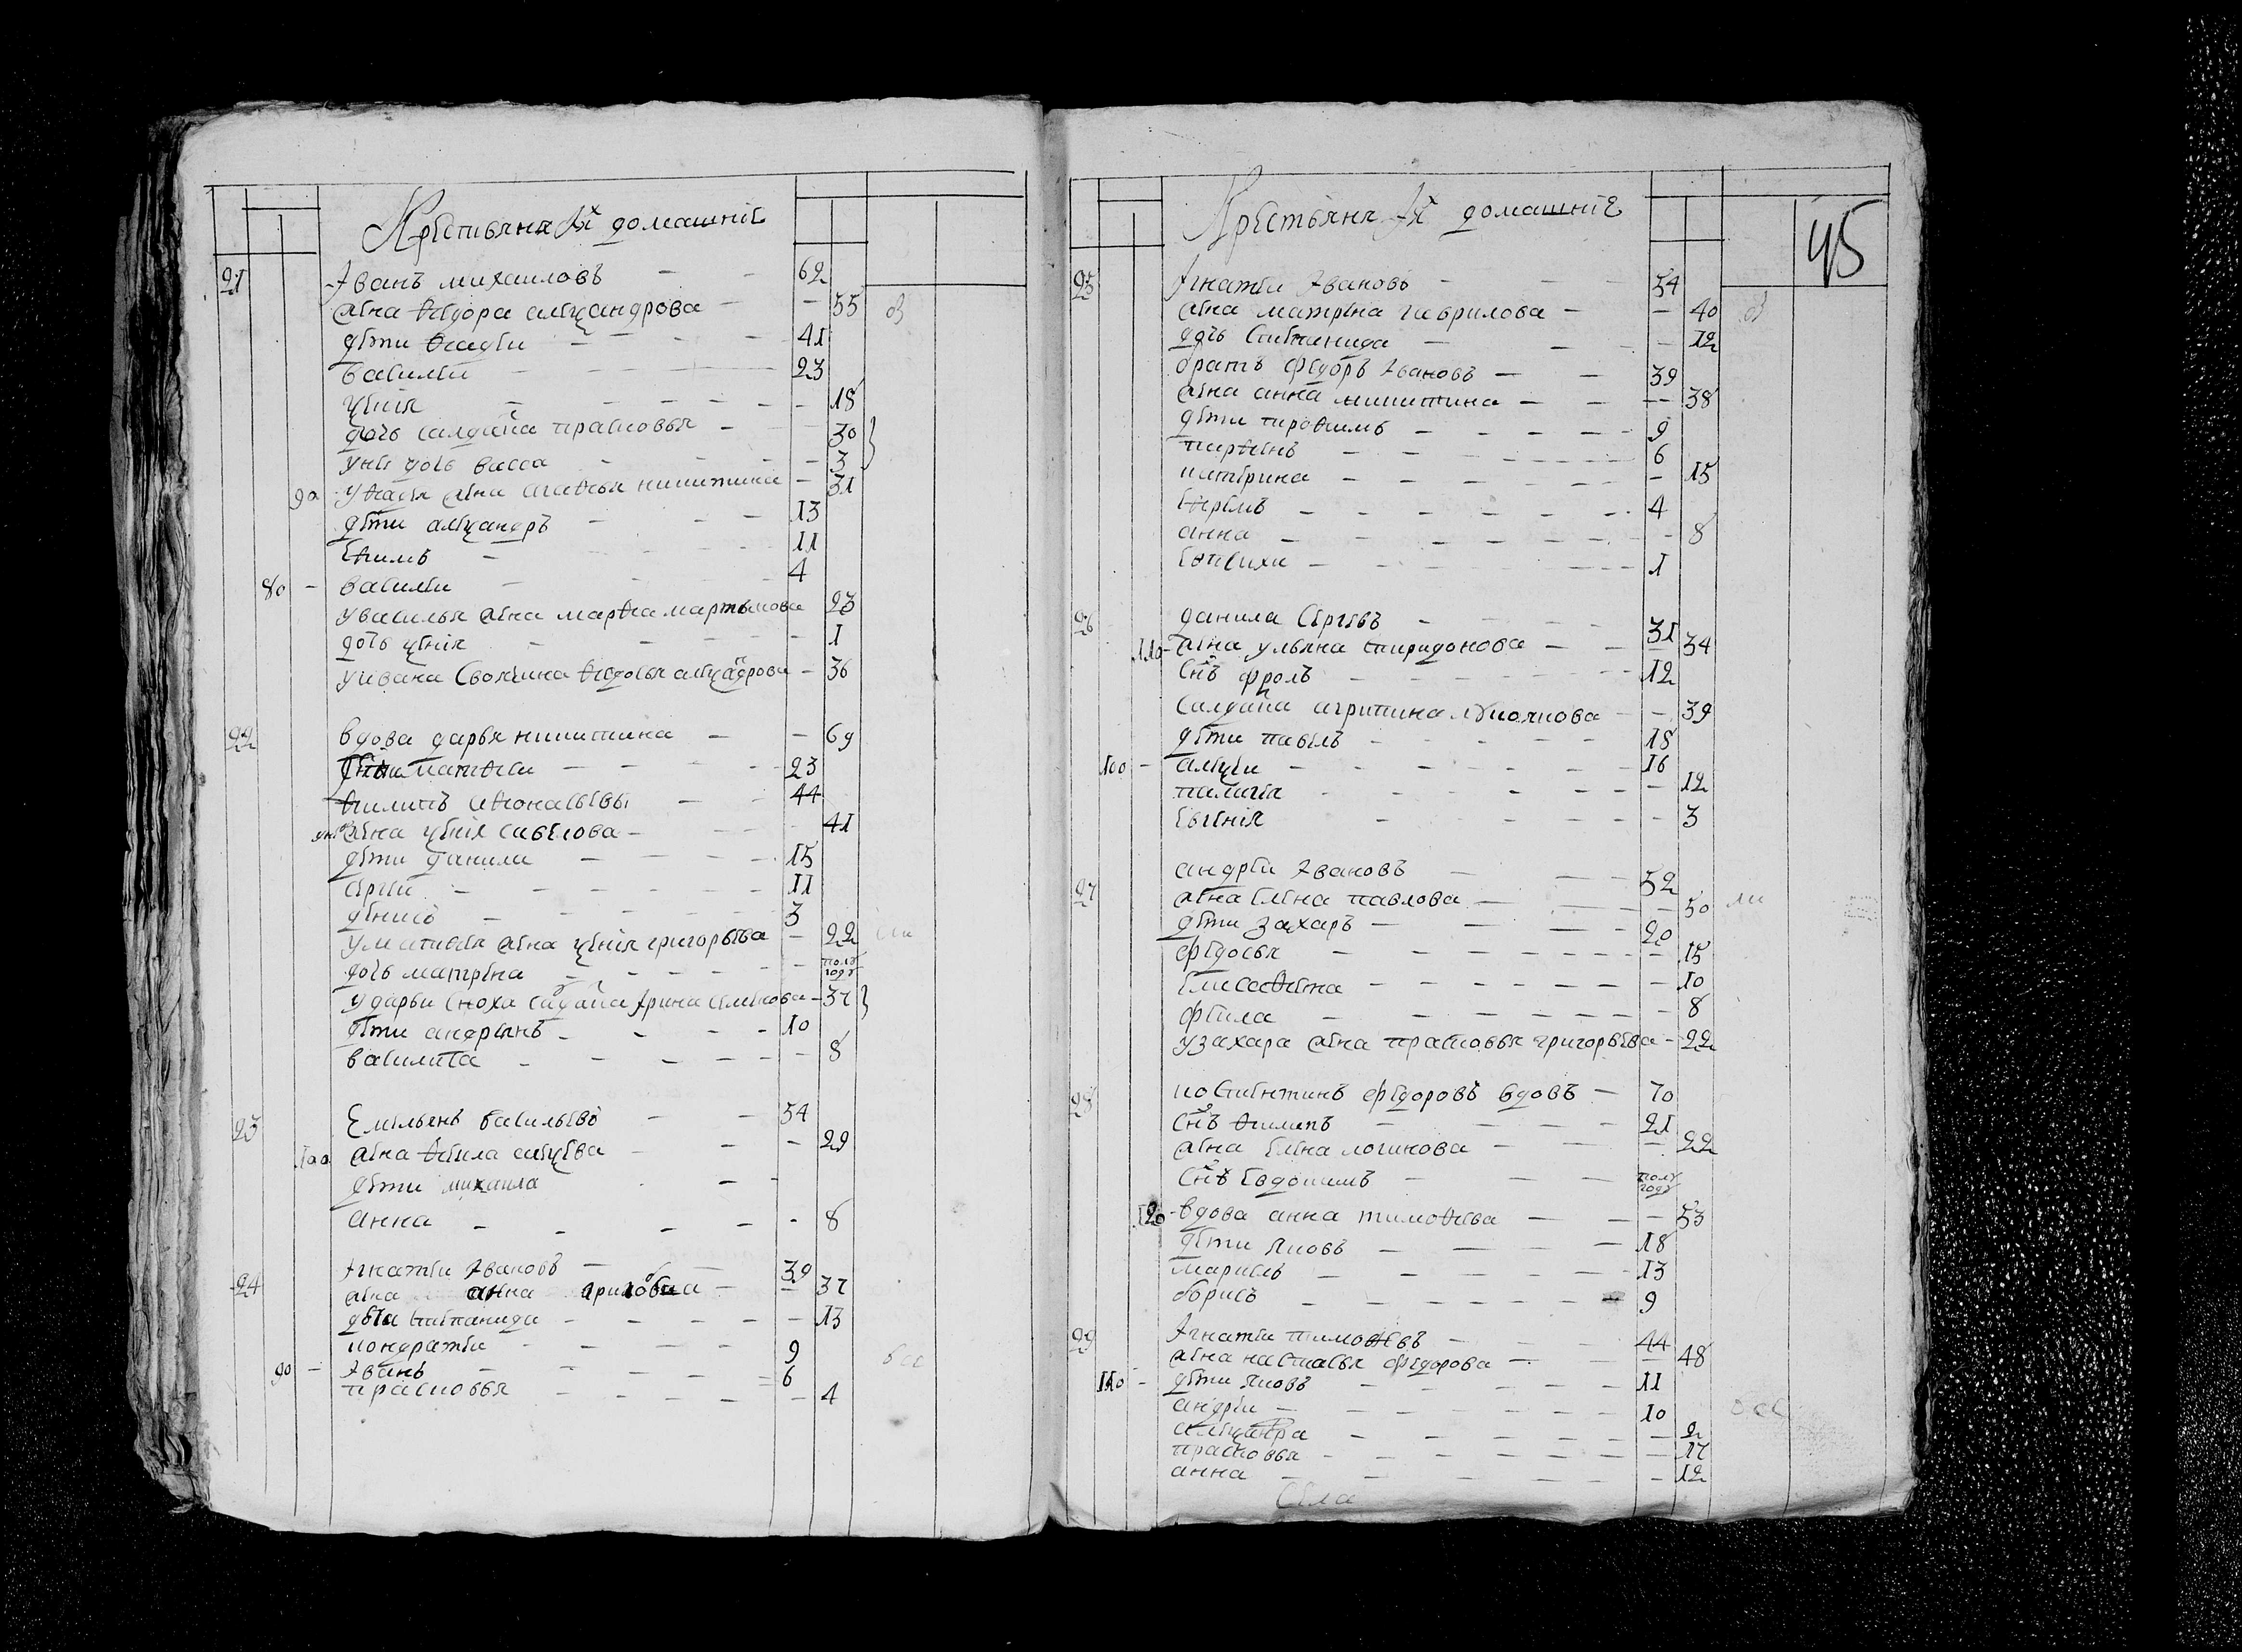 Крестьяня Их домашние
21 Иванъ михаиловъ 62
жена ѳедора алеѯандрова 55
дети ѳадеи 41
василеи 23
ѯения 18
дочь салдатка прасковья 30
у неи дочь васса 3
90 у ѳадея жена агаѳья никитина 31
дети алеѯандръ 13
еѳимъ 11
80 василеи 4
у василья жена марѳа мартынова 23
дочь ѯения 1
у ивана своячина ѳедосья алеѯандрова 36
22 вдова дарья никитина 69
дети матвеи 23
ѳилипъ аѳонасьевы 44
жена ѯения савелова 41
дети данила 15
сергеи 11
денисъ 3
у матвея жена ѯения григорьева 22
дочь матрена полугоду
у дарьи сноха салдатка Ирина семенова 37
дети андреянъ 10
василиса 8
23 Емельянъ васильевъ 54
100 жена ѳекла алеѯеева 29
дети михаила
анна 8
24 Игнатеи Ивановъ 39
жена анна 37
степанида 13
кондратеи 9
90 Иванъ 6
прасковья 4
Крестьяня Их домашние
45
25 Игнатеи Ивановъ 54
жена матрена гаврилова 40
дочь степанида 12
братъ федоръ Ивановъ 39
жена анна никитина 38
дети троѳимъ 9
парѳенъ 6
катерина 15
4
анна 8
1
26 данила Сергеевъ 31
110 жена ульяна спиридонова 34
снъ фролъ 12
салдатка агрипина лукоянова 39
дети павелъ 18
100 алеѯеи 16
палагея 12
евгения 3
27 андреи Ивановъ 52
жена елена павлова 50
дети захаръ 20
федосья 15
елисавета 10
фекла 8
у захара жена прасковья григорьева 22
28 костентинъ федоровъ вдовъ 70
снъ ѳилипъ 21
жена елена логинова 22
снъ евдокимъ полугоду
120 вдова анна тимоѳеева 53
дети яковъ 18
маркелъ 13
борисъ 9
29 Игнатеи тимоѳеевъ 44
жена настасья федорова 48
110 дети яковъ 11
андреи 10
алеѯандра 2
прасковья 17
анна 12
села